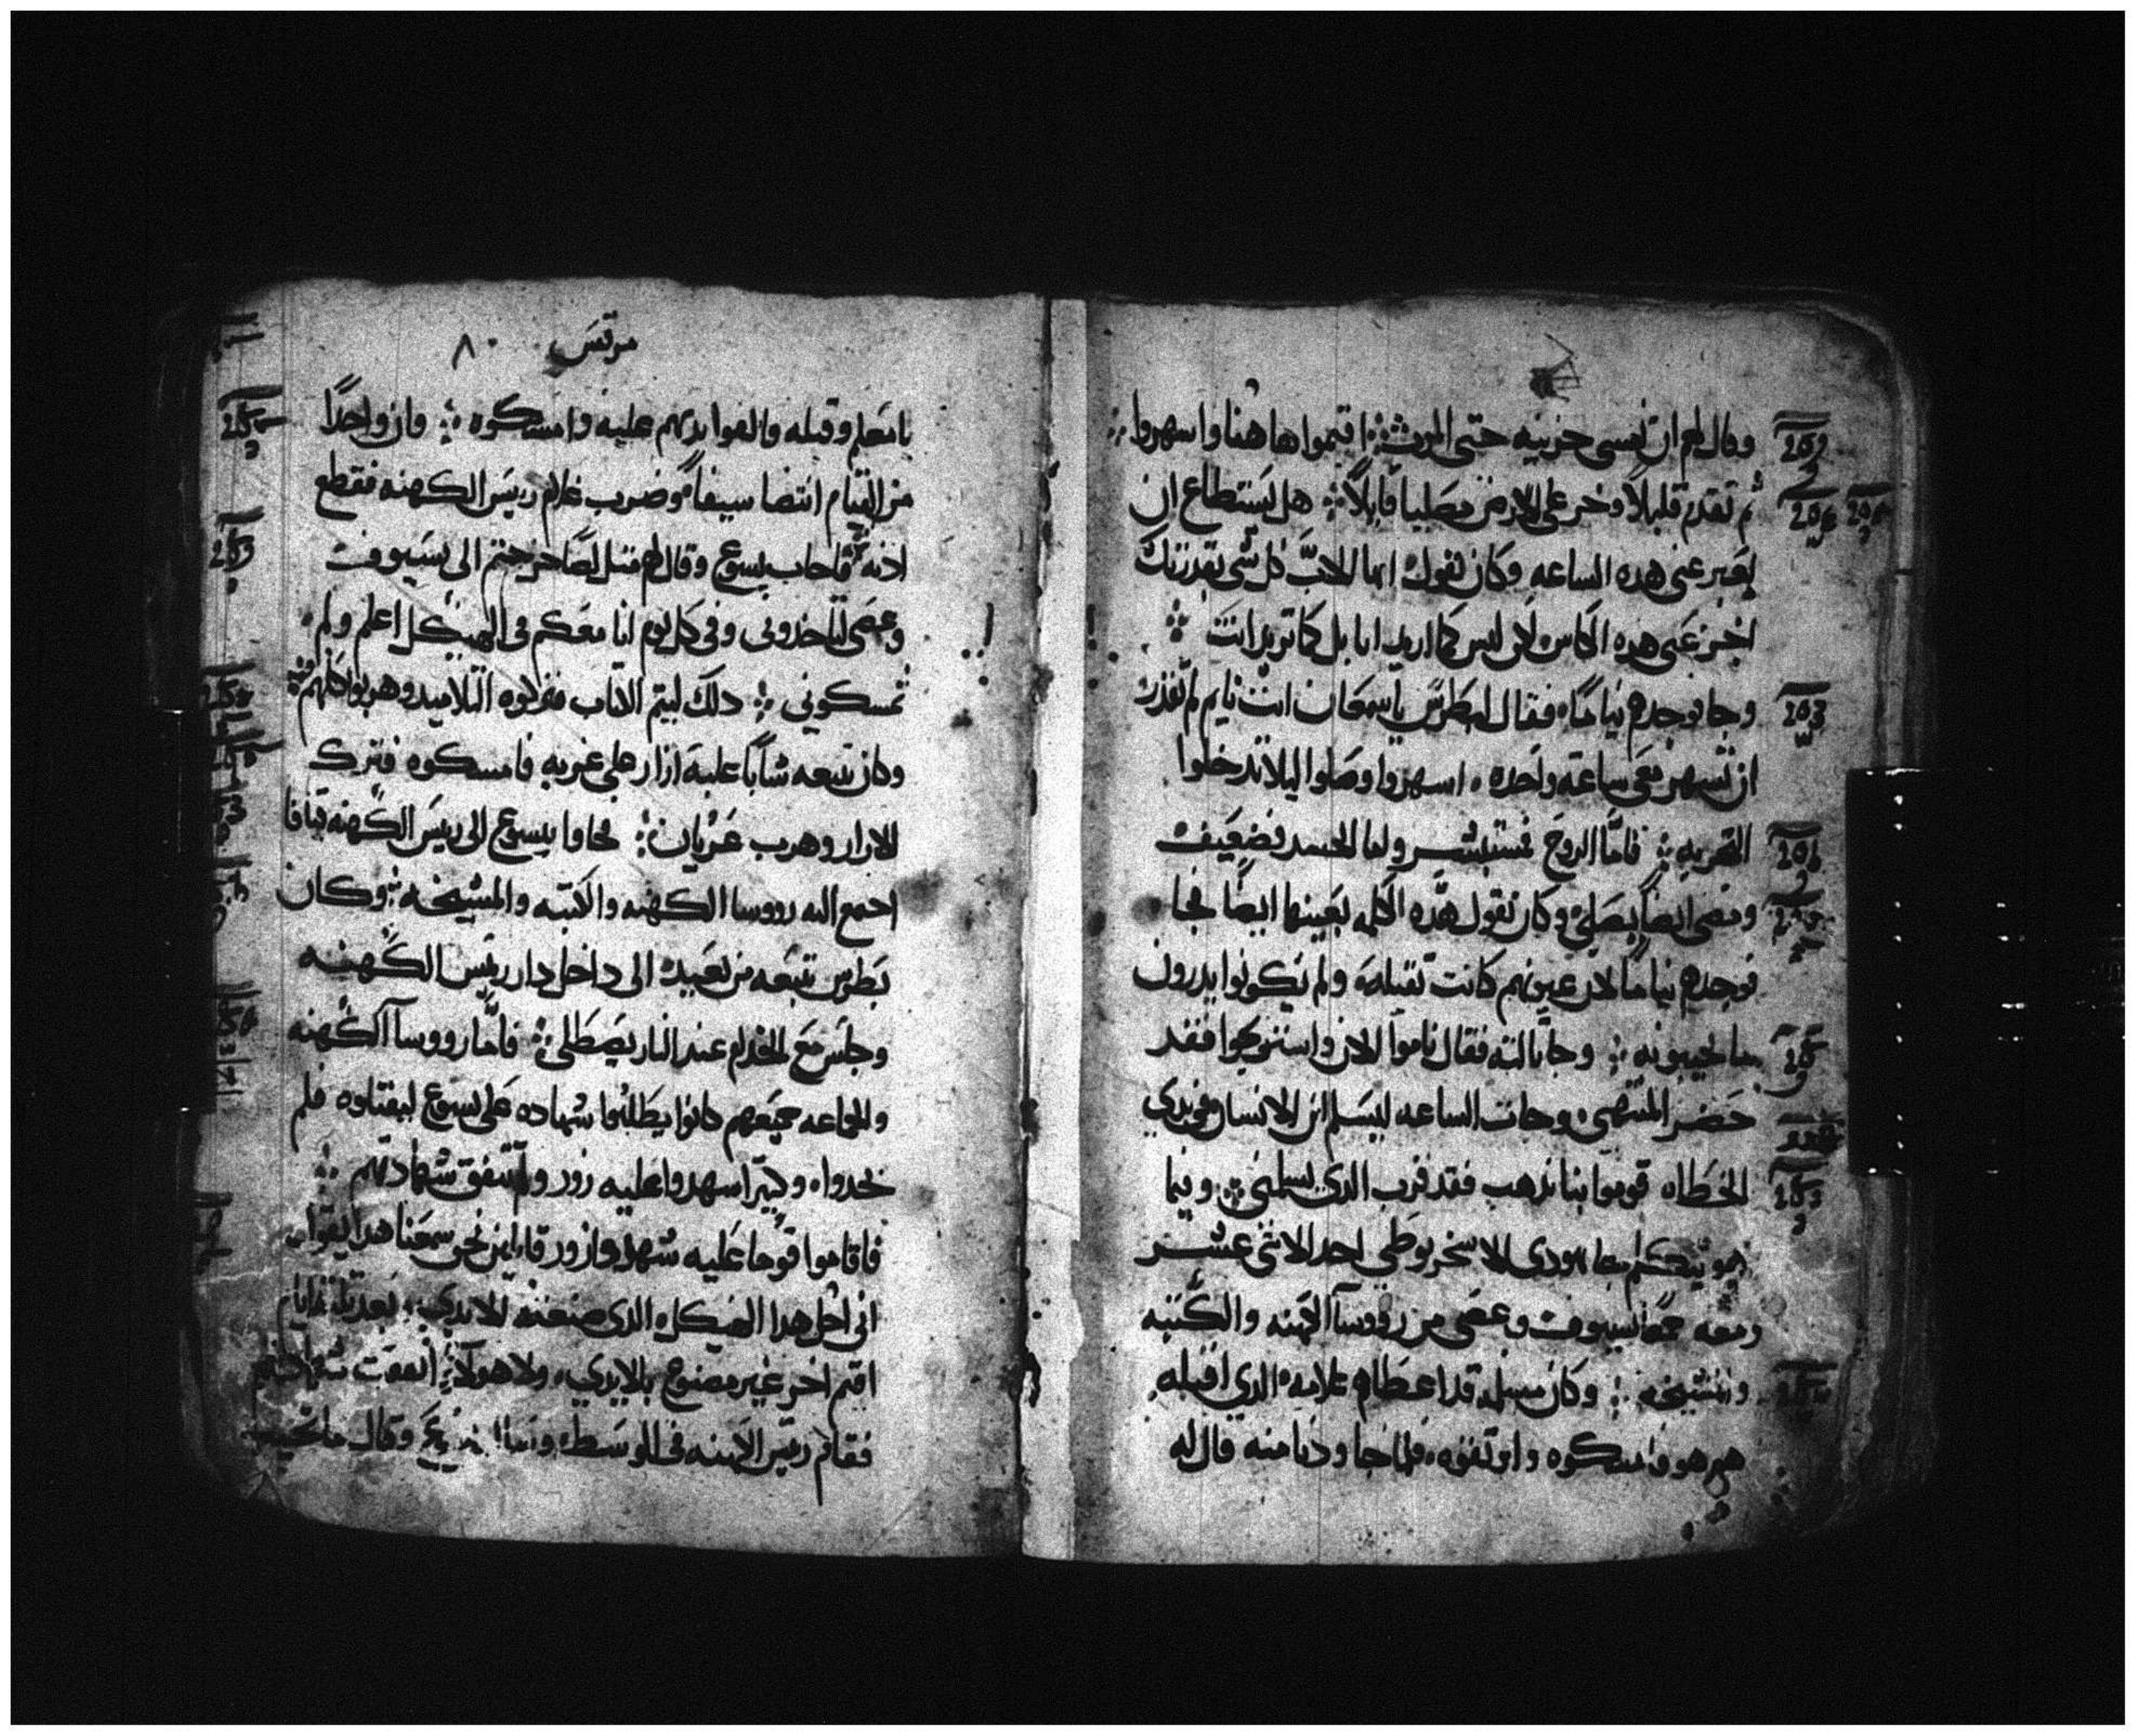 وقال لهم ان نفسي حزينه حتى الموت ܀ اقيموا هاهنا واسهروا ܀
ثم تقدم قليلاً وخر على الارض مصلياً قايلاً ܀ هل يستطاع ان
يعبر عني هده الساعه وكان يقول ايها الاب كل شي بقدرتك
اجز عني هده الكاس لكن ليس كما اريد انا بل كما تريد انت ܀
وجا فوجدهم نياماً فقال لبطرس يا سمعان انت نايم لم تقدر
ان تسهر معي ساعه واحده . اسهروا وصلوا ليلا تدخلوا
التجربه ܀ فاما الروح فمستبشر واما الجسد فضعيف
ومضى ايضاً يصلي وكان يقول هده الكلمه بعينها ايضاً فجا
فوجدهم نياماً لان عيونهم كانت ثقيله ولم يكونوا يدرون
ما يجيبونه ܀ وجا ثالثه فقال ناموا الان واستريحوا فقد
حضر المنتهى وجات الساعه ليسلم ابن الانسان في يدي
الخطاه قوموا بنا ندهب فقد قرب الدي يسلمني ܀ وبينما
هو يتكلم جا يهودى الاسخريوطي احد الاثني عشر
ومعه جمع بسيوف وعصي من رووسا الكهنه والكتبه
والمشيخه ܀ وكان مسلمه قد اعطاهم علامه الدي اقبله
هو هو فامسكوه واوثقوه . فلما جا ودنا منه قال له
مرقس ٨٠
يا معلم وقبله والقوا يديهم عليه وامسكوه ܀ وان واحداً
من القيام انتضا سيفاً وضرب غلام ريس الكهنه فقطع
ادنه فاجاب يسوع وقال لهم مثل لصاً خرجتم الى بسيوف
وعصي لتاخدوني وفي كل يوم انا معكم في الهيكل اعلم ولم
تمسكوني ܀ دلك ليتم الكتاب فتركوه التلاميد وهربوا كلهم ܀
وكان تبعه شاباً عليه ازار على عريه فامسكوه فترك
الازار وهرب عريان ܀ فجاوا بيسوع الى ريس الكهنه قيافا
اجمع اليه رووسا الكهنه والكتبه والمشيخه ܀ وكان
بطرس تبعه من بعيد الى داخل دار ريس الكهنه
وجلس مع الخدام عند النار يصطلى ܀ فاما رووسا الكهنه
والجماعه جميعهم كانوا يطلبوا شهاده على يسوع ليقتلوه فلم
يجدواه وكثيراً شهدوا عليه زور ولم تتفق شهادتهم ܀
فاقاموا قوماً عليه شهدوا زور قايلين نحن سمعنا هدا يقول
اني احل هدا الهيكل الدي صنعته الايدي . بعد ثلثه ايام
اقيم اخر غير مصنوع بالايدي . ولا هولاء اتفقت شهادتهم
فقام ريس الكهنه في الوسط وقال ما تجيب